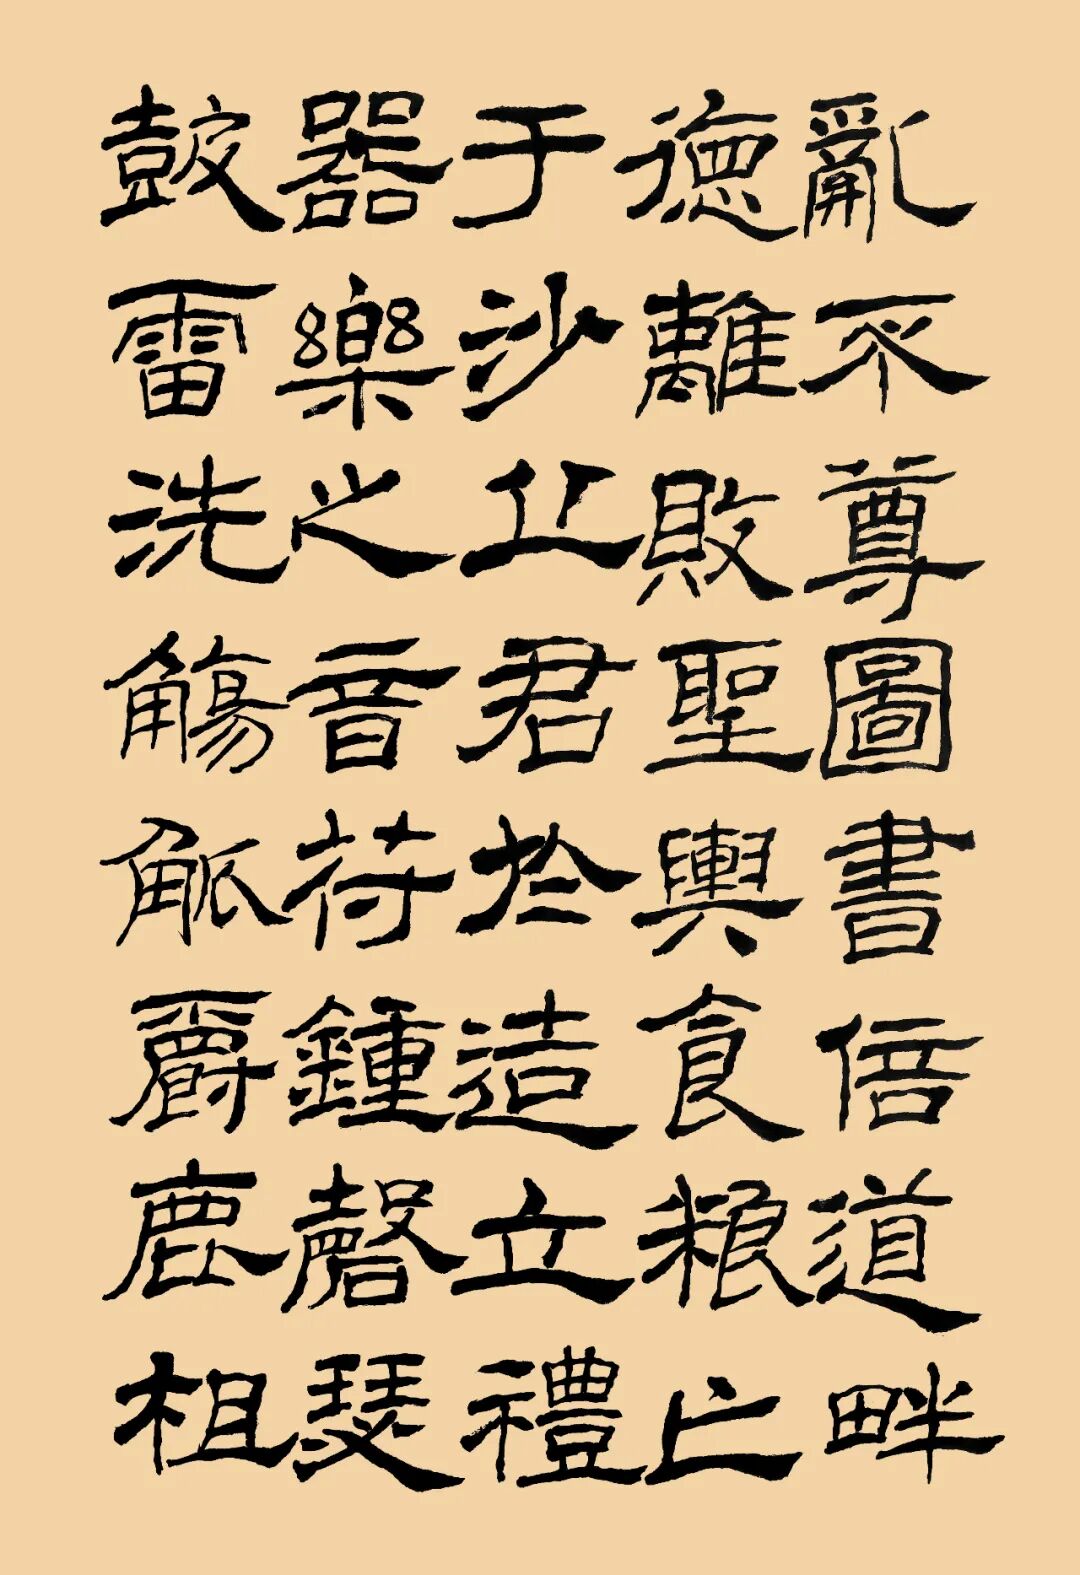 亂不尊圖書倍道畔
德離敗聖輿食粮亡
于沙丘君於造立禮
器樂之音苻鍾磬瑟
皷雷洗觴觚爵鹿柤